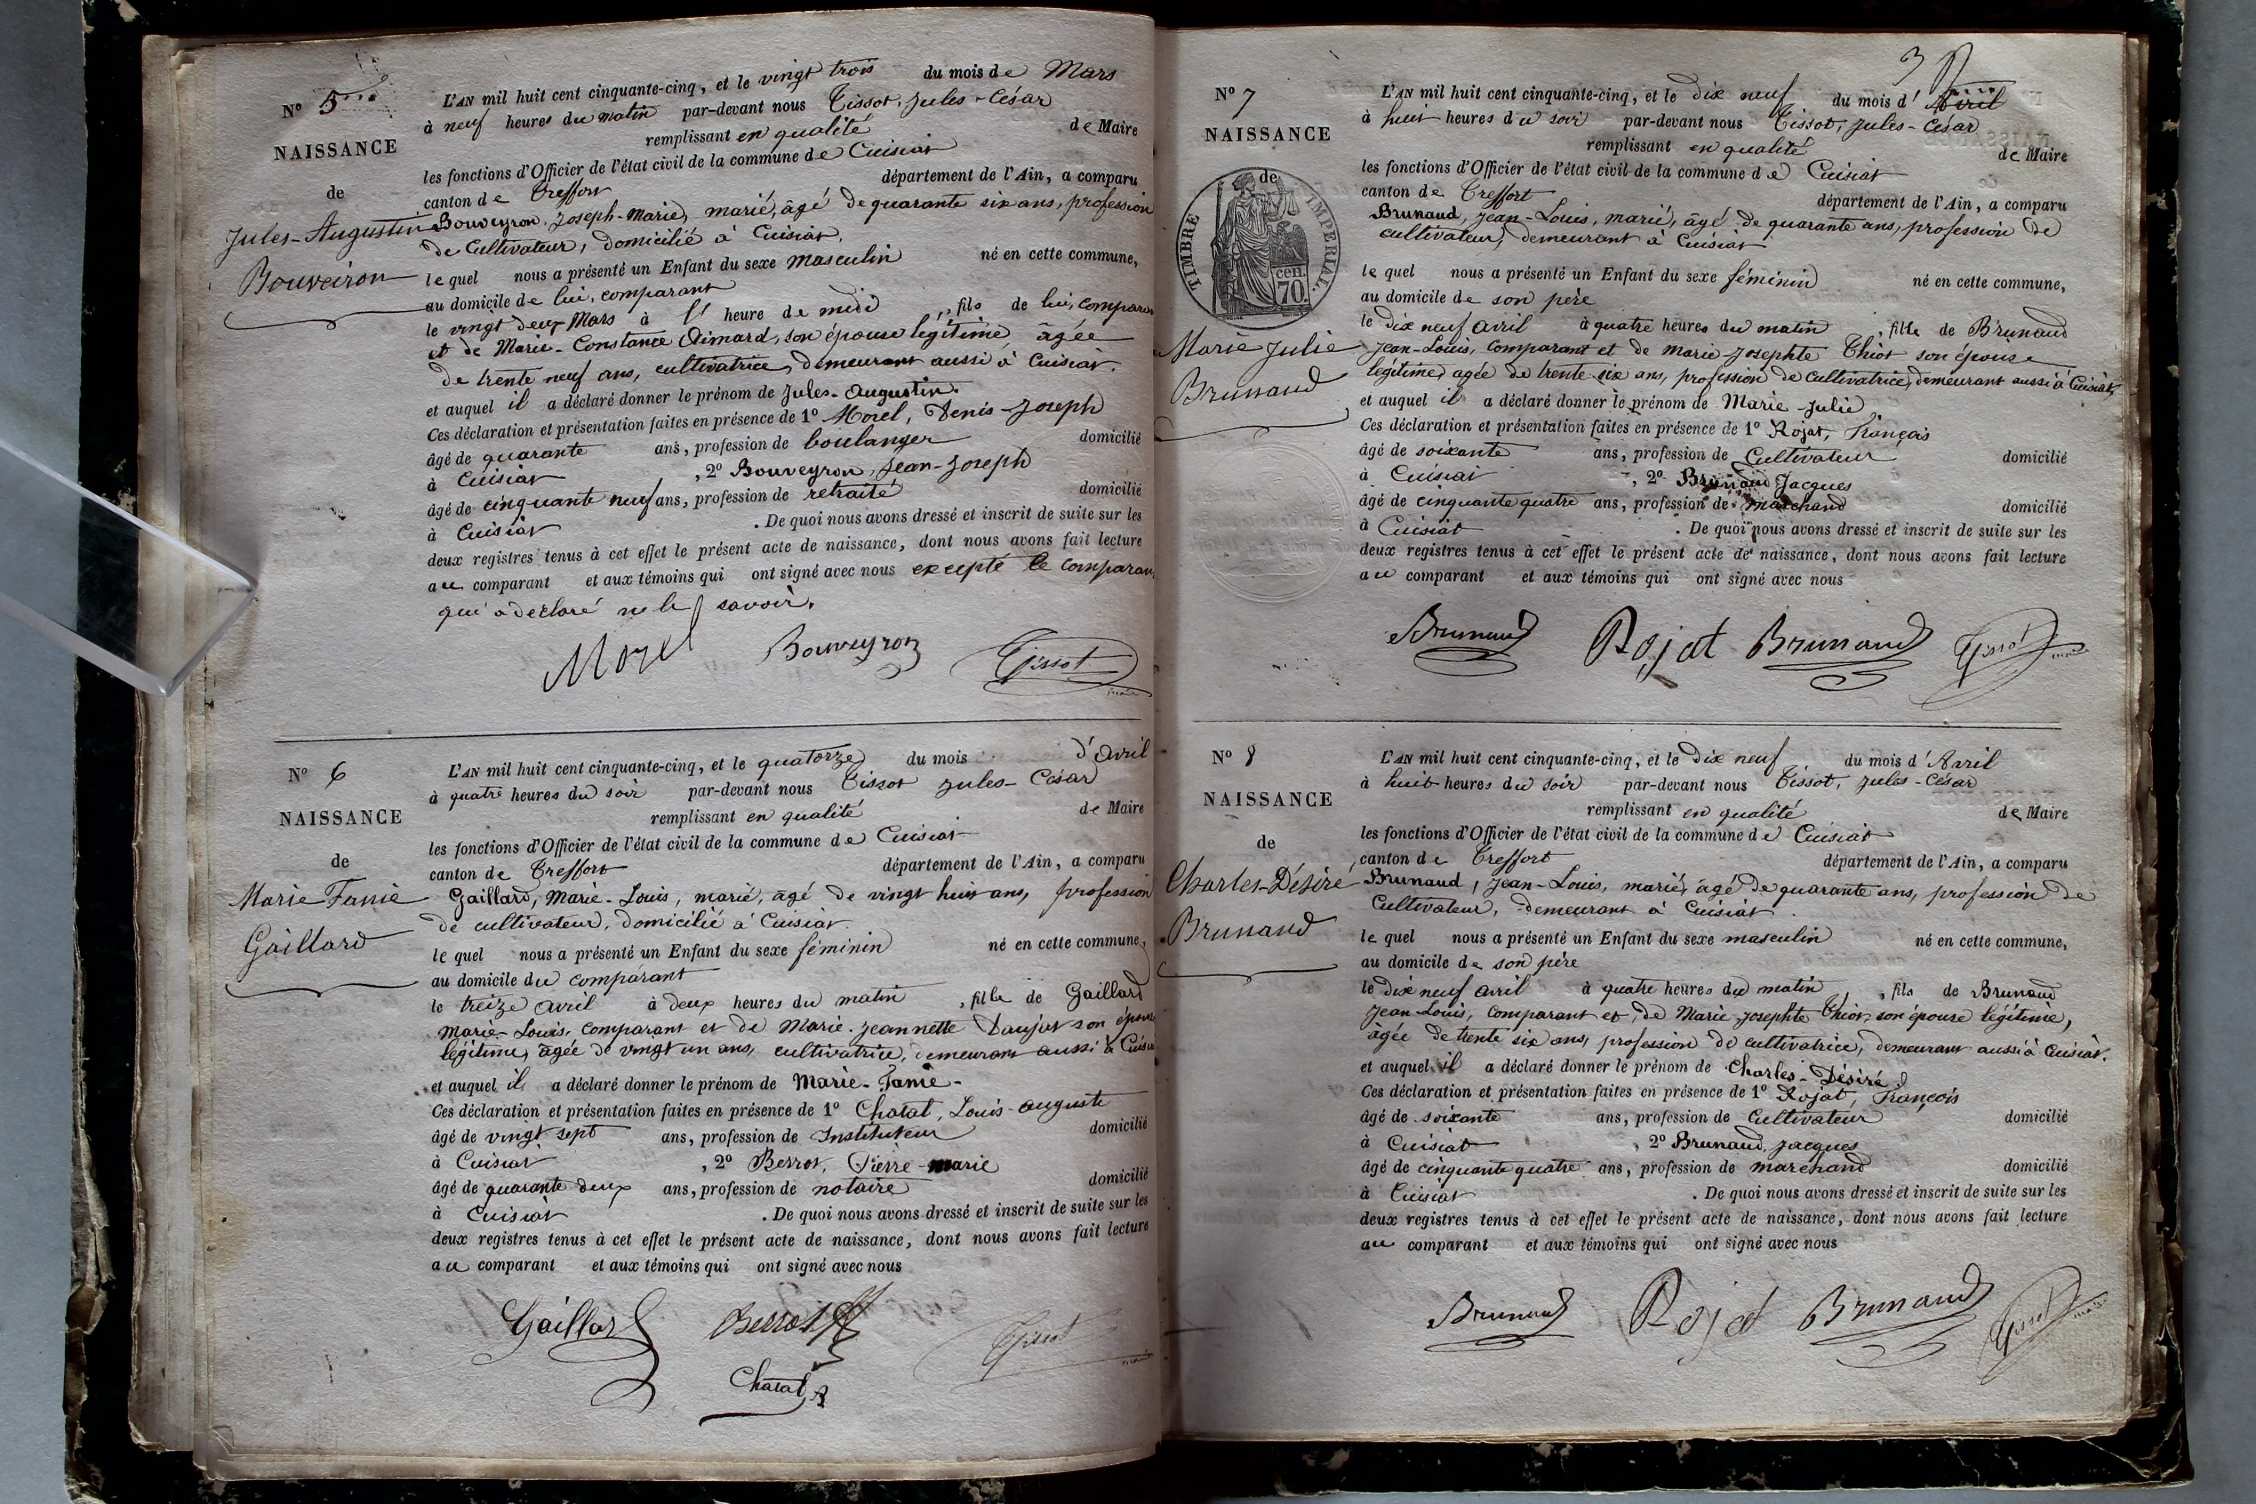 Nº 5
NAISSANCE
de
Jules-Augustin
Bouveiron
L'AN mil huit cent cinquante-cinq, et le vingt trois du mois de Mars
à neuf heures du matin par-devant nous Tissot, Jules-César
remplissant en qualité de Maire
les fonctions d'Officier de l'état civil de la commune de Cuisiat
canton de Treffort département de l'Ain, a comparu
Bouveyron, Joseph-Marie, marié, âgé de quarante six ans, profession
de cultivateur, domicilié à Cuisiat.
le quel nous a présenté un Enfant du sexe masculin né en cette commune,
au domicile de lui, comparant
le vingt deux Mars à heure de midi, fils de lui, comparant
et de Marie-Constance Aimard, son épouse légitime âgée
de trente neuf ans, cultivatrice, demeurant aussi à Cuisiat.
et auquel il a déclaré donner le prénom de Jules-Augustin.
Ces déclaration et présentation faites en présence de 1º Morel, Denis-Joseph
âgé de quarante ans, profession de boulanger domicilié
à Cuisiat, 2º Bouveyron, Jean-Joseph
âgé de cinquante neuf ans, profession de retraité domicilié
à Cuisiat. De quoi nous avons dressé et inscrit de suite sur les
deux registres tenus à cet effet le présent acte de naissance, dont nous avons fait lecture
au comparant et aux témoins qui ont signé avec nous excepté le comparant
qui a déclaré ne le savoir.
Morel Bouveyron Tissot
maire
Nº 6
NAISSANCE
de
Marie Fanie
Gaillard
L'AN mil huit cent cinquante-cinq, et le quatorze du mois d'Avril
à quatre heures du soir par-devant nous Tissot Jules-César
remplissant en qualité de Maire
les fonctions d'Officier de l'état civil de la commune de Cuisiat
canton de Treffort département de l'Ain, a comparu
Gaillard, Marie-Louis, marié, âgé de vingt huit ans, profession
de cultivateur, domicilié à Cuisiat.
le quel nous a présenté un Enfant du sexe féminin né en cette commune,
au domicile du comparant
le treize avril à deux heures du matin, fille de Gaillard
Marie-Louis, comparant et de Marie-Jeannette Daujat son épouse
légitime, âgée de vingt un ans, cultivatrice, demeurant aussi à Cuisiat
et auquel il a déclaré donner le prénom de Marie-Fanie-
Ces déclaration et présentation faites en présence de 1º Chatat, Louis-Auguste
âgé de vingt sept ans, profession de Instituteur domicilié
à Cuisiat, 2º Berrot, Pierre-Marie
âgé de quarante deux ans, profession de notaire domicilié
à Cuisiat. De quoi nous avons dressé et inscrit de suite sur les
deux registres tenus à cet effet le présent acte de naissance, dont nous avons fait lecture
au comparant et aux témoins qui ont signé avec nous
Gaillard Berrot Tissot
maire
Chatat
3
Nº 7
NAISSANCE
de
TIMBRE IMPERIAL.
cen.
70.
Marie Julie
Brunaud
L'AN mil huit cent cinquante-cinq, et le dix neuf du mois d'Avril
à huit heures du soir par-devant nous Tissot, Jules-César
remplissant en qualité de Maire
les fonctions d'Officier de l'état civil de la commune de Cuisiat
canton de Treffort département de l'Ain, a comparu
Brunaud, Jean-Louis, marié, âgé de quarante ans, profession de
cultivateur, demeurant à Cuisiat
le quel nous a présenté un Enfant du sexe féminin né en cette commune,
au domicile de son père
le dix neuf avril à quatre heures du matin, fille de Brunaud
Jean-Louis, comparant et de Marie Josephte Thiot son épouse
légitime, âgée de trente six ans, profession de cultivatrice, demeurant aussi à Cuisiat,
et auquel il a déclaré donner le prénom de Marie-Julie
Ces déclaration et présentation faites en présence de 1º Rojat, François
âgé de soixante ans, profession de Cultivateur domicilié
à Cuisiat, 2º Brunaud Jacques
âgé de cinquante quatre ans, profession de marchand domicilié
à Cuisiat. De quoi nous avons dressé et inscrit de suite sur les
deux registres tenus à cet effet le présent acte de naissance, dont nous avons fait lecture
au comparant et aux témoins qui ont signé avec nous
Brunaud Rojat Brunaud Tissot
maire
Nº 8
NAISSANCE
de
Charles-Désiré
Brunaud
L'AN mil huit cent cinquante-cinq, et le dix neuf du mois d'Avril
à huit heures du soir par-devant nous Tissot, Jules-César
remplissant en qualité de Maire
les fonctions d'Officier de l'état civil de la commune de Cuisiat
canton de Treffort département de l'Ain, a comparu
Brunaud, Jean-Louis, marié, âgé de quarante ans, profession de
Cultivateur, demeurant à Cuisiat.
le quel nous a présenté un Enfant du sexe masculin né en cette commune,
au domicile de son père
le dix neuf avril à quatre heures du matin, fils de Brunaud
Jean-Louis, comparant et de Marie Josephte Thiot son épouse légitime,
âgée de trente six ans, profession de cultivatrice, demeurant aussi à Cuisiat.
et auquel il a déclaré donner le prénom de Charles-Désiré
Ces déclaration et présentation faites en présence de 1º Rojat, François
âgé de soixante ans, profession de Cultivateur domicilié
à Cuisiat, 2º Brunaud, Jacques
âgé de cinquante quatre ans, profession de marchand domicilié
à Cuisiat. De quoi nous avons dressé et inscrit de suite sur les
deux registres tenus à cet effet le présent acte de naissance, dont nous avons fait lecture
au comparant et aux témoins qui ont signé avec nous
Brunaud Rojat Brunaud Tissot
maire